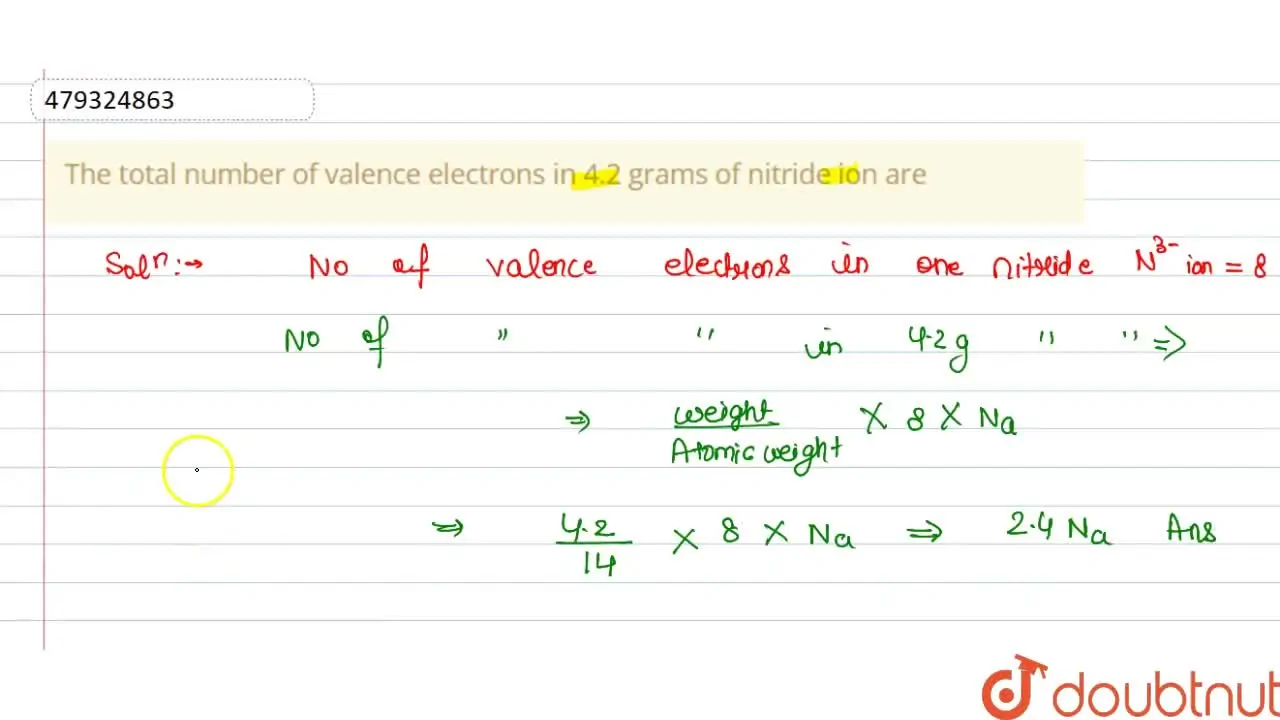 479324863
The total number of valence electrons in 4.2 grams of nitride ion are
Solⁿ:→ No of valence electrons in one nitride N³⁻ ion = 8
No of " " in 4.2g " " ⇒
⇒ weight / Atomic weight × 8 × Na
⇒ 4.2 / 14 × 8 × Na ⇒ 2.4 Na Ans
doubtnut